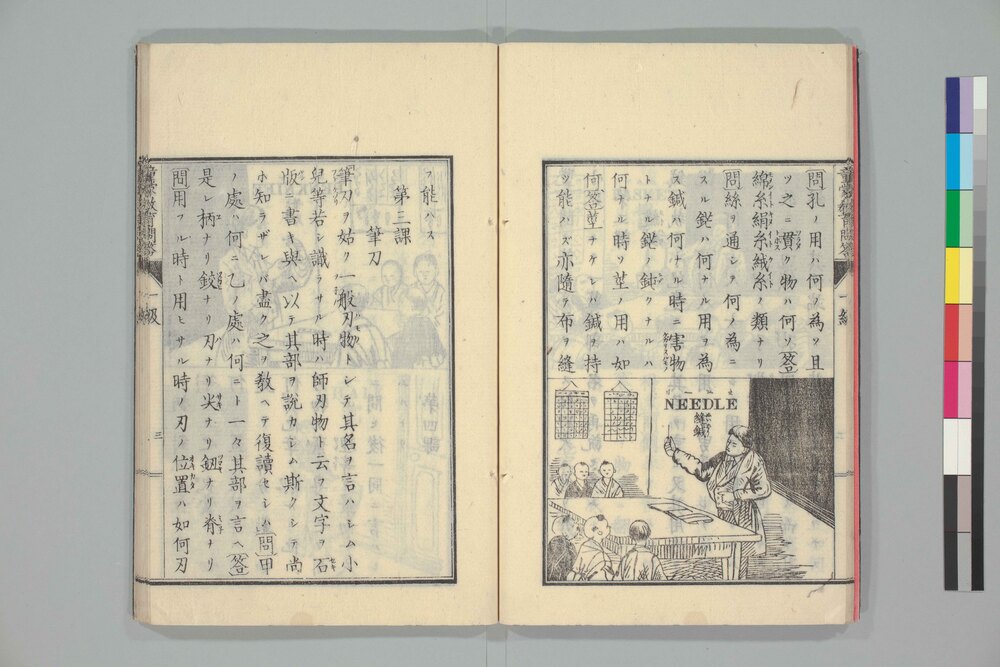 問孔ノ用ハ何ノ為ソ且
ツ之ニ貫ク物ハ何ソ答
綿糸絹糸絨糸ノ類ナリ
問絲ヲ通シテ何ノ為ニ
スル鍦ハ何ナル用ヲ為
ス鍼ハ何ナル時ニ害物
トナル鍦ノ鈍クナルハ
何ナル時ソ莖ノ用ハ如
何答莖ナケレハ鍼ヲ持
ツ能ハズ亦隨テ布ヲ縫
NEEDLE
縫鍼
フ能ハス
第三課 筆刀
筆刀ヲ姑ク一般刃物トシテ其名ヲ言ハシム小
兒等若シ識ラサル時ハ師刃物ト云フ文字ヲ石
版ニ書キ與ヘ以テ其部ヲ說カシム斯クシテ尚
ホ知ラザレバ盡ク之ヲ敎ヘテ復讀セシハ問甲
ノ處ハ何ニ乙ノ處ハ何ニト一々其部ヲ言ヘ答
是レ柄ナリ鉸ナリ刃ナリ尖ナリ釼ナリ脊ナリ
問用フル時ト用ヒサル時ノ刃ノ位置ハ如何刃
一級
三